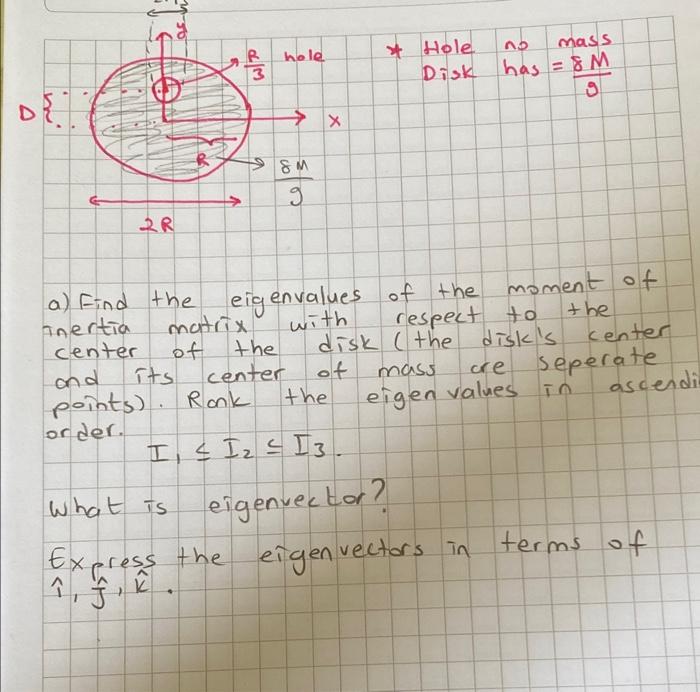 y
R/3 hole
* Hole no mass
Disk has = 8M/9
D
x
R
8M/9
2R
a) Find the eigenvalues of the moment of
inertia matrix with respect to the
center of the disk (the disk's center
and its center of mass are seperate
points). Rank the eigen values in ascendi
order.
I₁ ≤ I₂ ≤ I₃.
What is eigenvector?
Express the eigenvectors in terms of
î, ĵ, k̂.